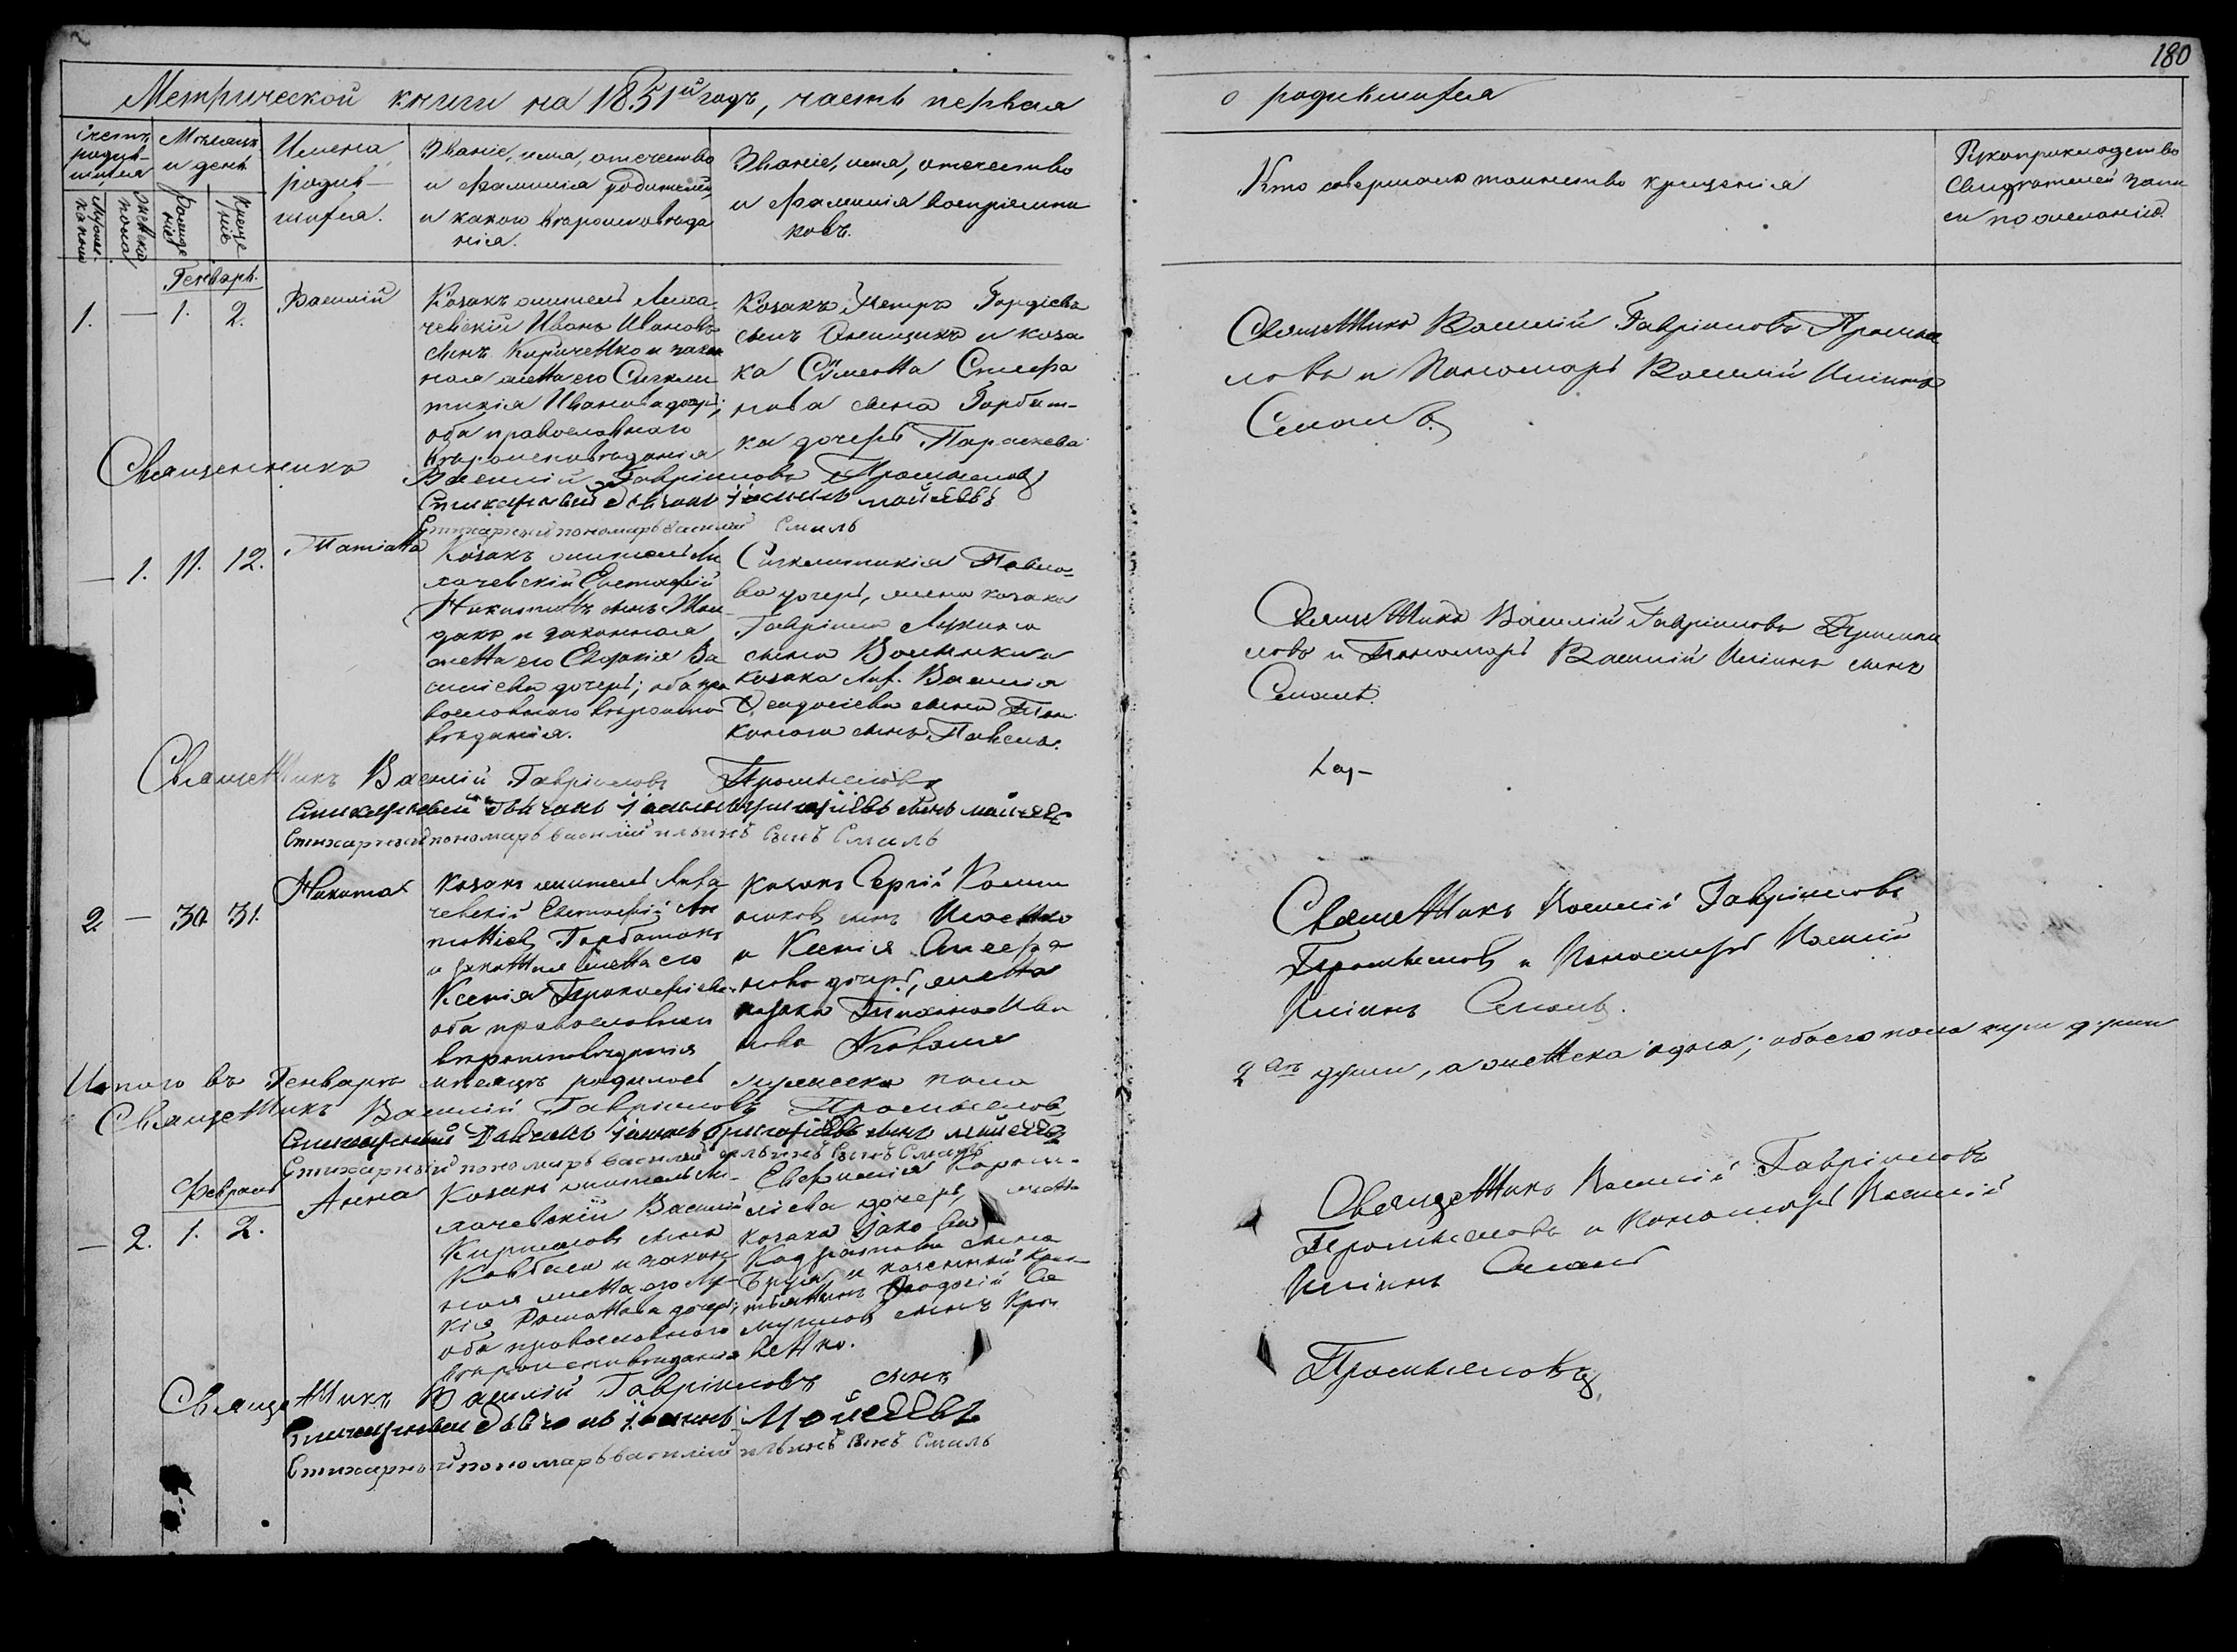 180
Метрической книги на 1851й годъ, часть первая
о родившихся
Счетъ родив-шихся
Мѣсяцъ и день
Имена родив-шихся.
Званіе, имя, отечество и фамилія родителей, и какого вѣроисповѣда нія.
Званіе, имя, отечество и фамилія воспріемни ковъ.
Кто совершалъ таинство крещенія
Рукоприкладство свидѣтелей запи си по желанію.
Мужес-ка пола
женска пола
рожде ніе
креще ніе
Генварь.
1. — 1. 2.
Василій
Козакъ жителъ Лиха-
чевскій Иванъ Ивановъ
сынъ Кириченко и закон
ная жена его Сигкли
тикія Иванова дочерь;
оба православного
вѣроисповѣданія
Козакъ Петръ Гордіевъ
сынъ Онищенко и коза
ка Сѵмеона Стефа
нова сына Горбат-
ка дочерь Параскева
Священникъ Василій Гавріиловъ Промысло
въ и Пономарь Василій Иліинъ
Смаль.
Священникъ Василій Гавріиловъ Промысловъ
Стихарный Дьячокъ Іоаннъ мойсеевъ
Стихарный пономарь василій Смаль
— 1. 11. 12.
Татіана
Козакъ жителъ Ли
хачевскій Евстафій
Никитинъ сынъ
и законная
жена его Евдокія Ва
силіева дочерь; оба пра
вославного вѣроиспо
вѣданія.
Сигклитикія Павло-
ва дочерь, жена козака
Гавріила Лукина
сына и
козака Лих. Василія
Феодосіева сына
сынъ Павелъ.
Священникъ Василій Гавріиловъ Промы
словъ и Пономарь Василій Иліинъ сынъ
Смаль.
Священникъ Василій Гавріиловъ Промысловъ
Стихарный Дьячокъ Іоаннъ Григоріевъ сынъ мойсеевъ
Стихарный пономарь василій ильинъ сынъ Смаль
2. — 30. 31.
Никита
Козакъ жителъ Лиха
чевскій Евстафій Ан
тоніевъ Горбатокъ
и законная жена его
Ксенія Прокофіева
оба православнаго
вѣроисповѣданія
Козакъ Сергій
сынъ
и Ксенія
нова дочерь, жена
козака Тихона Ива
нова
Священникъ Василій Гавріиловъ
Промысловъ и Пономарь Василій
Иліинъ Смаль.
Итого въ Генварѣ мѣсяцѣ родилось мужеска пола
2 души, а женска одна; обоего пола три души
Священникъ Василій Гавріиловъ Промысловъ
Стихарный Дьячокъ Іоаннъ Григоріевъ сынъ мойсеевъ
Стихарный пономарь василій ильинъ сынъ Смаль
Февраль
— 2. 1. 2.
Анна
Козакъ жителъ Ли-
хачевскій Василій
Кирилловъ сынъ
Ковбаса и закон
ная жена его Лу
кія Романова дочерь;
оба православного
вѣроисповѣданія
Евфимія
дочерь, жена
козака Іакова
Кодратова сына
и казенный Крес-
тьянинъ Феодосій Са
муиловъ сынъ Крав
ченко.
Священникъ Василій Гавріиловъ
Промысловъ и Пономарь Василій
Иліинъ Смаль
Священникъ Василій Гавріиловъ сынъ
Промысловъ
Стихарный Дьячокъ Іоаннъ Мойсеевъ
Стихарный пономарь василій ильинъ сынъ Смаль